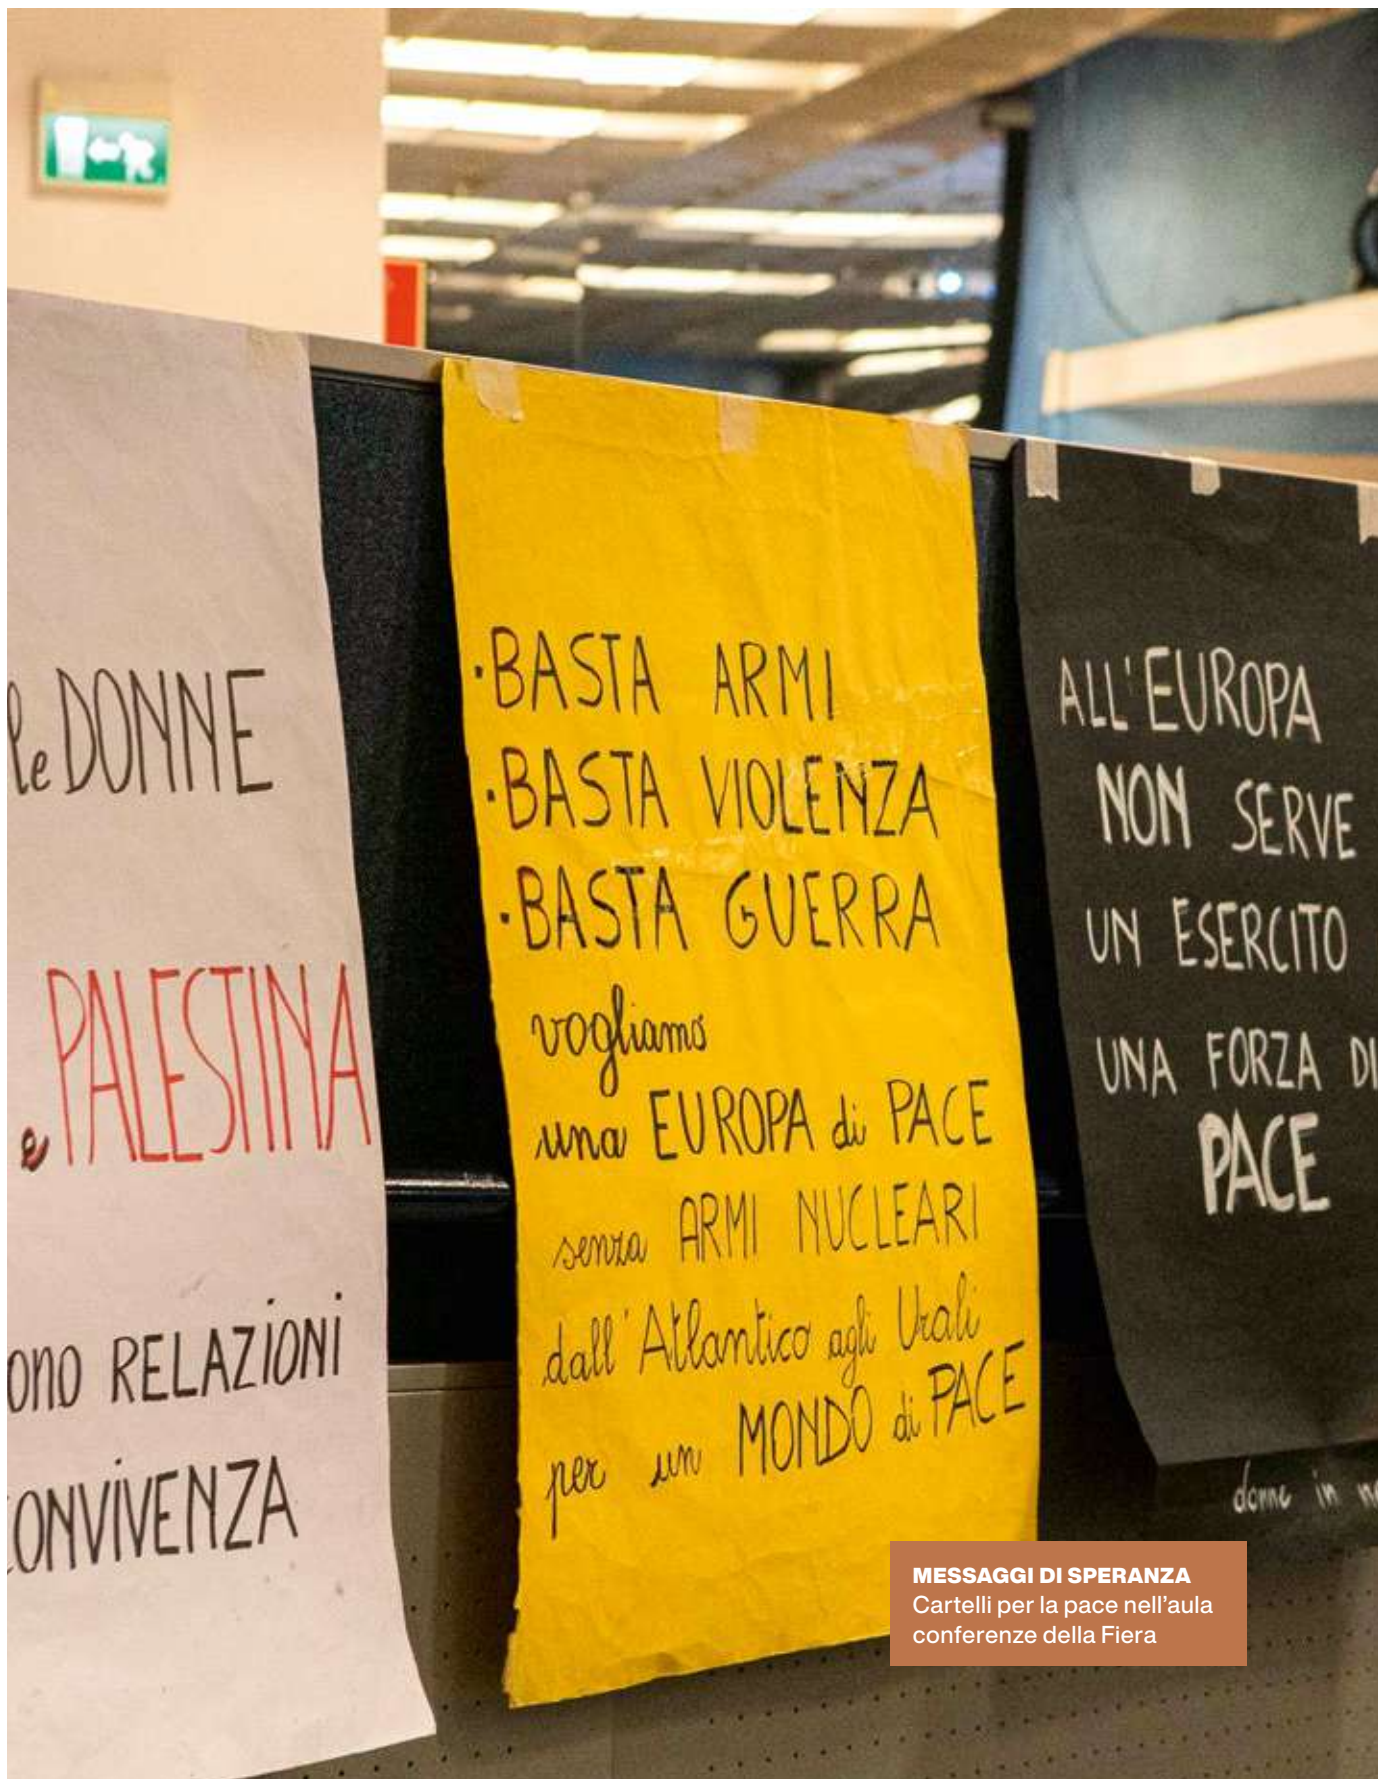 le DONNE
e PALESTINA
RELAZIONI
·BASTA ARMI
·BASTA VIOLENZA
·BASTA GUERRA
vogliamo
una EUROPA di PACE
senza ARMI NUCLEARI
dall'Atlantico agli Urali
per un MONDO di PACE
ALL'EUROPA
NON SERVE
UN ESERCITO
UNA FORZA DI
PACE
donne in
MESSAGGI DI SPERANZA
Cartelli per la pace nell'aula
conferenze della Fiera